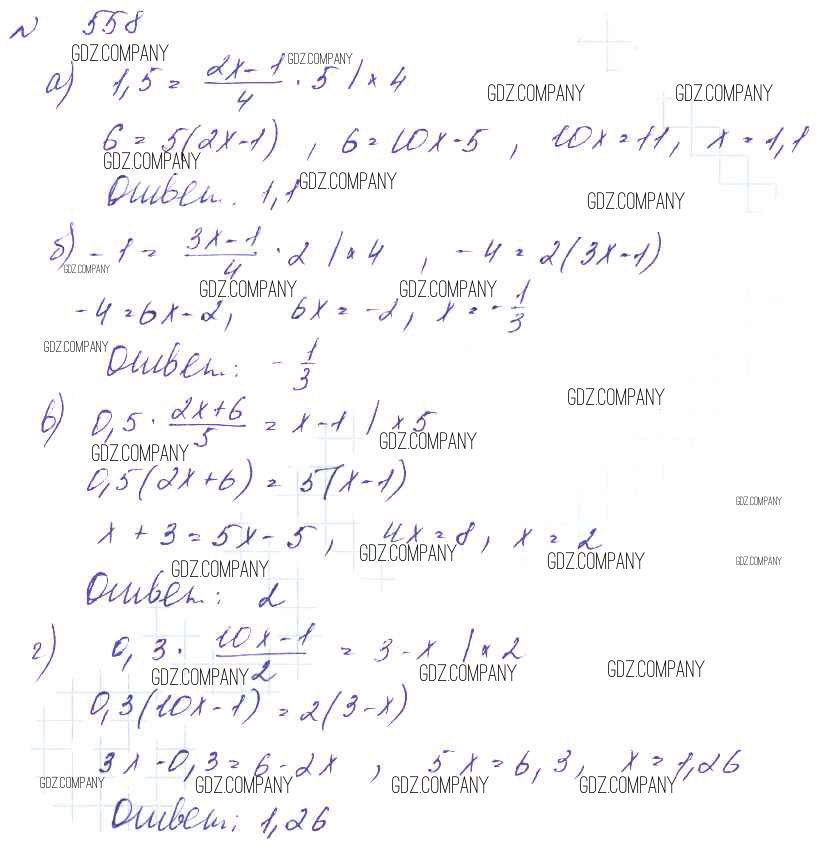 № 558
GDZ.COMPANY
а) 1,5 = (2x-1)/4 · 5 | × 4
GDZ.COMPANY
GDZ.COMPANY
GDZ.COMPANY
6 = 5(2x-1) , 6 = 10x-5 , 10x=11, x = 1,1
GDZ.COMPANY
Ответ. 1,1
GDZ.COMPANY
GDZ.COMPANY
б) -1 = (3x-1)/4 · 2 | × 4 , -4 = 2(3x-1)
GDZ.COMPANY
GDZ.COMPANY
GDZ.COMPANY
-4=6x-2, 6x = -2, x = -1/3
GDZ.COMPANY
Ответ: -1/3
GDZ.COMPANY
в) 0,5 · (2x+6)/5 = x-1 | × 5
GDZ.COMPANY
GDZ.COMPANY
0,5(2x+6) = 5(x-1)
GDZ.COMPANY
x + 3 = 5x - 5, 4x = 8, x = 2
GDZ.COMPANY
GDZ.COMPANY
GDZ.COMPANY
GDZ.COMPANY
Ответ: 2
г) 0,3 · (10x-1)/2 = 3-x | × 2
GDZ.COMPANY
GDZ.COMPANY
GDZ.COMPANY
0,3(10x-1) = 2(3-x)
3x-0,3=6-2x , 5x=6,3, x=1,26
GDZ.COMPANY
GDZ.COMPANY
GDZ.COMPANY
GDZ.COMPANY
Ответ: 1,26